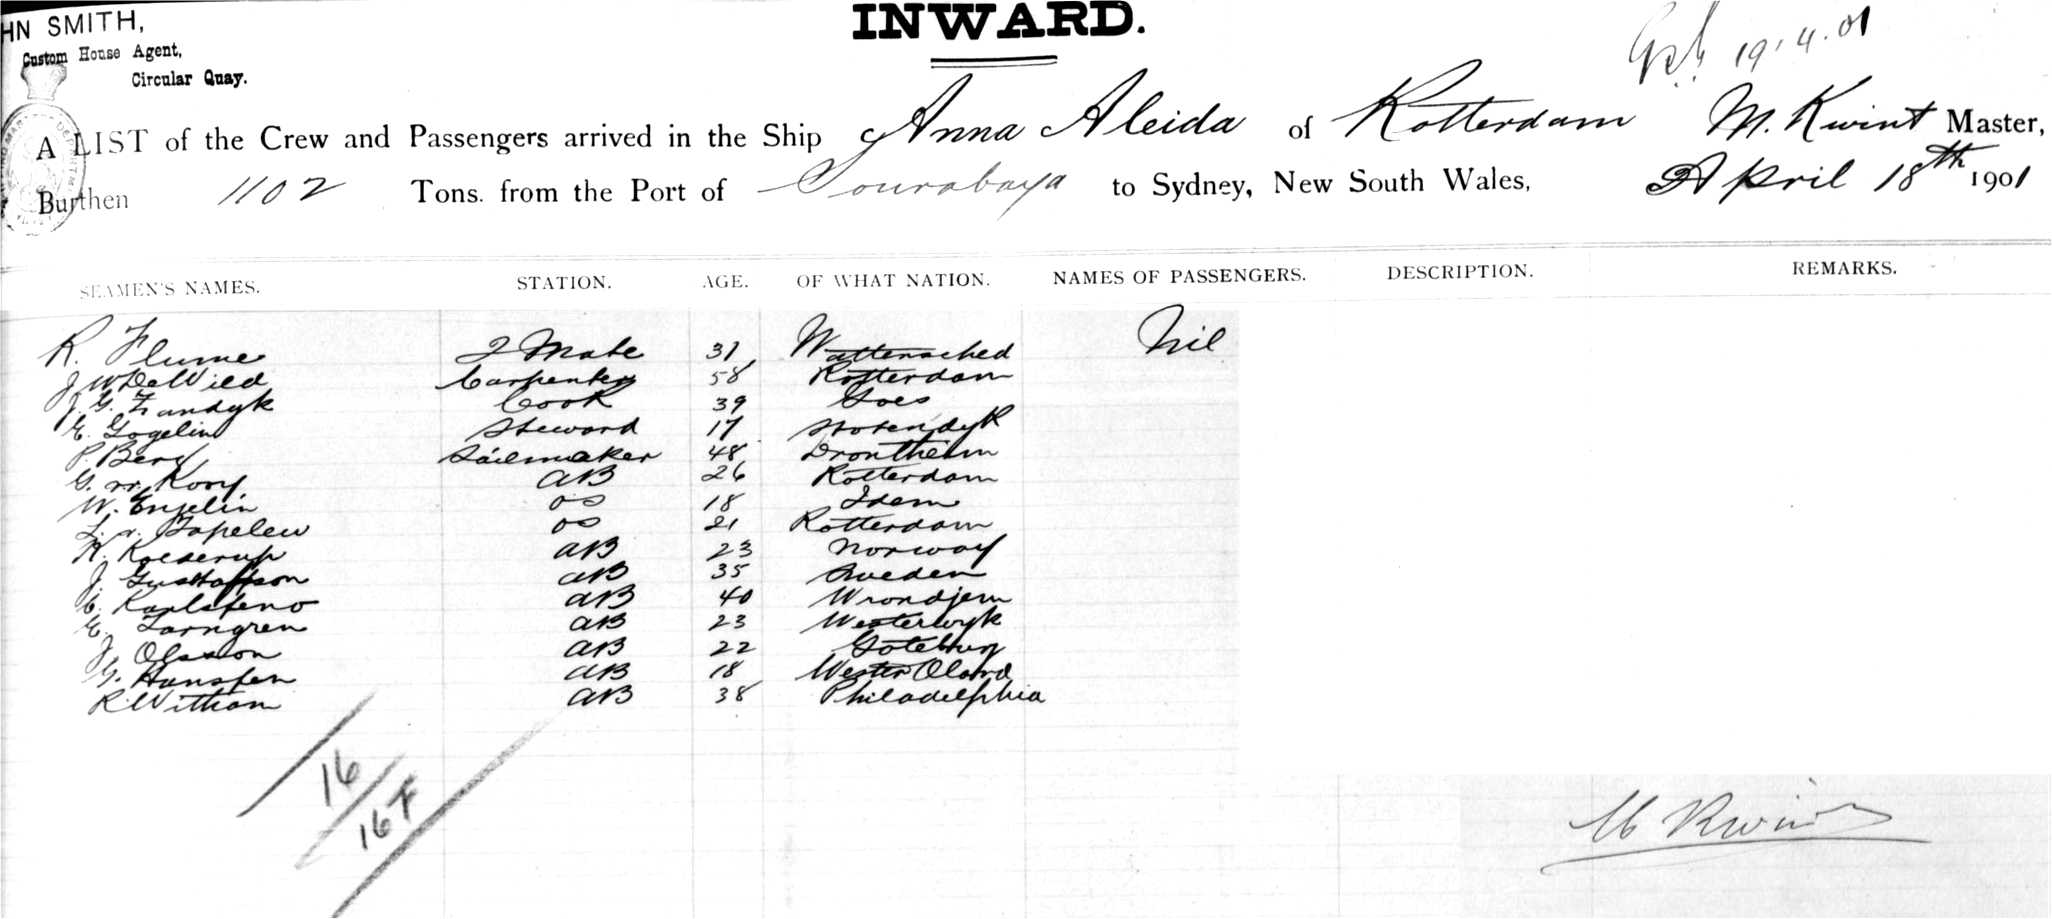 HN SMITH,
Custom House Agent,
Circular Quay.
INWARD.
19.4.01
A LIST of the Crew and Passengers arrived in the Ship Anna Aleida of Rotterdam M. Kwint Master,
Burthen 1102 Tons. from the Port of Sourabaya to Sydney, New South Wales, April 18th 1901
SEAMEN'S NAMES. STATION. AGE. OF WHAT NATION. NAMES OF PASSENGERS. DESCRIPTION. REMARKS.
R. Flume 2 Mate 31 Wattensched Nil
J W De Wied Carpenter 58 Rotterdam
J. G. Zandyk Cook 39 Goes
E. Gogelin Steward 17
P. Berg Sailmaker 48 Drontheim
G. Kooy AB 26 Rotterdam
W. Engelin OS 18 Idem
L. v. OS 21 Rotterdam
Kolderup AB 23 Norway
J. Gusttaffson AB 35 Sweden
C. AB 40 Wrondjem
E. Torngren AB 23 Westerwyk
J Olsson AB 22 Göteburg
G. Hansfen AB 18 Wester Oland
R. Witham AB 38 Philadelphia
16
16 F
M Kwint